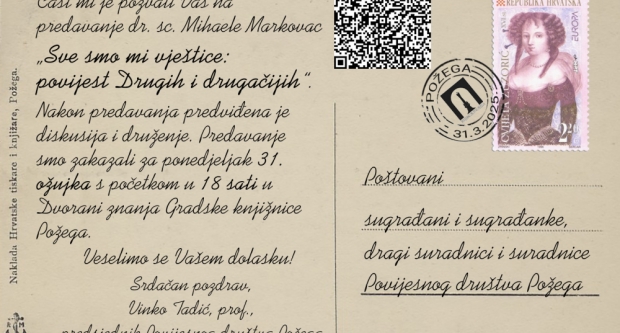 Čast mi je pozvati Vas na
predavanje dr. sc. Mihaele Markovac
„Sve smo mi vještice:
povijest Drugih i drugačijih“.
Nakon predavanja predviđena je
diskusija i druženje. Predavanje
smo zakazali za ponedjeljak 31.
ožujka s početkom u 18 sati u
Dvorani znanja Gradske knjižnice
Požega.
Veselimo se Vašem dolasku!
Srdačan pozdrav,
Vinko Tadić, prof.,
predsjednik Povijesnog društva Požega
Naklada Hrvatske tiskare i knjižare, Požega.
REPUBLIKA HRVATSKA
EUROPA
CVIJETA ZUZORIĆ
POŽEGA
31.3.2025.
Poštovani
sugrađani i sugrađanke,
dragi suradnici i suradnice
Povijesnog društva Požega